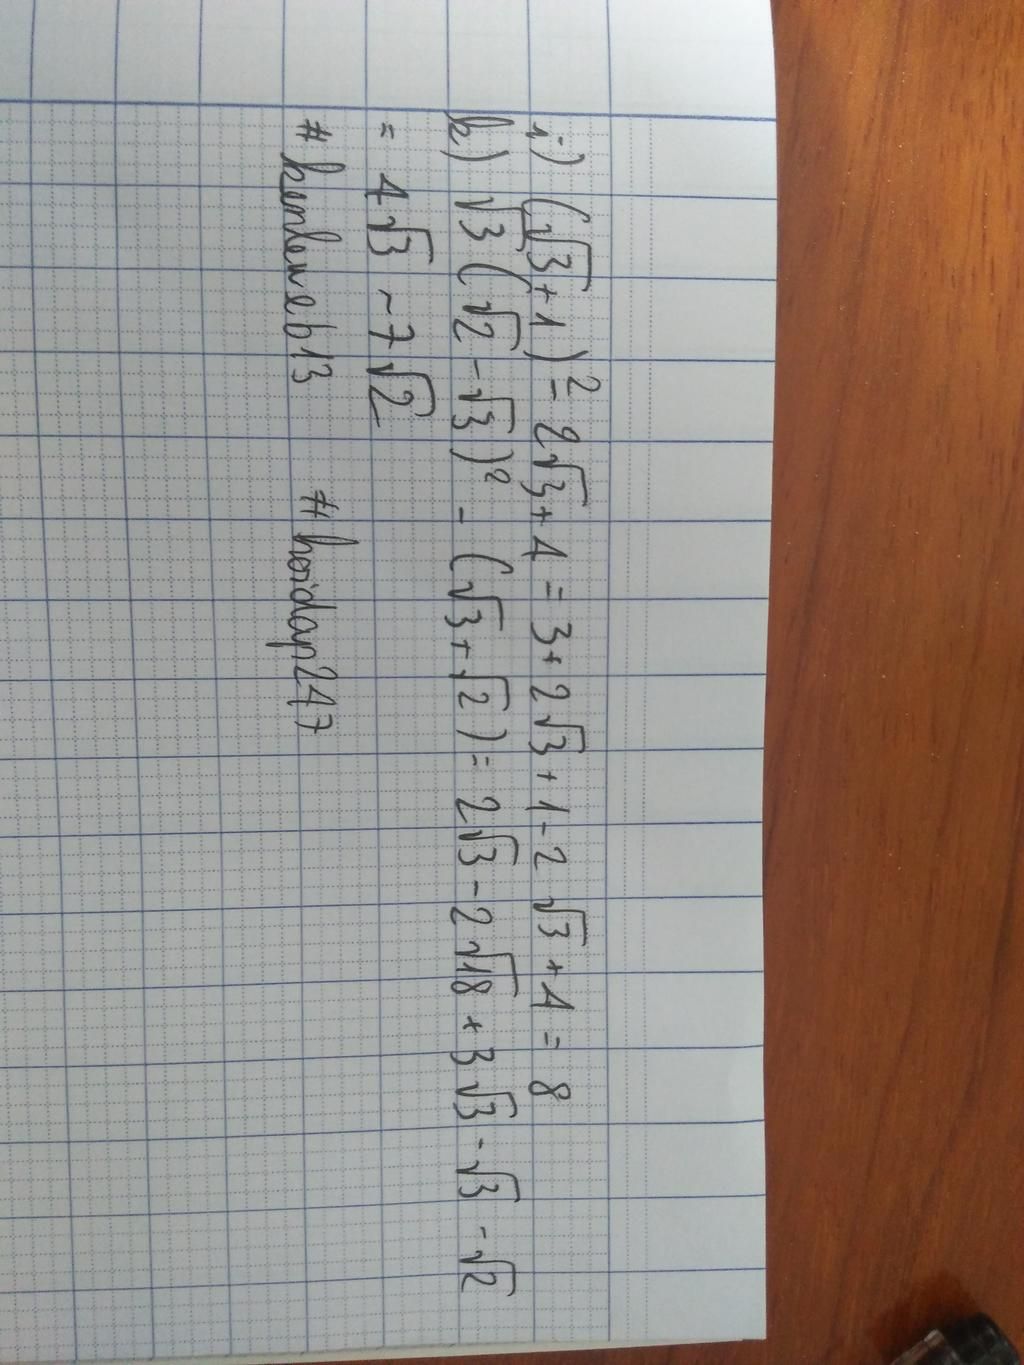 i) (√3+1)² - 2√3 + 4 = 3 + 2√3 + 1 - 2√3 + 4 = 8
k) √3 (√2 - √3)² - (√3 + √2) = 2√3 - 2√18 + 3√3 - √3 - √2
= 4√3 - 7√2
#kenleweb13 #hoidap247